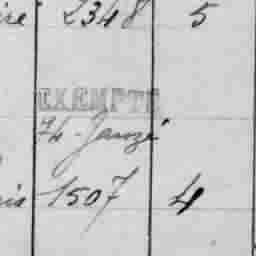 ire 2348 5
EXEMPTE
Janzé
1507 4